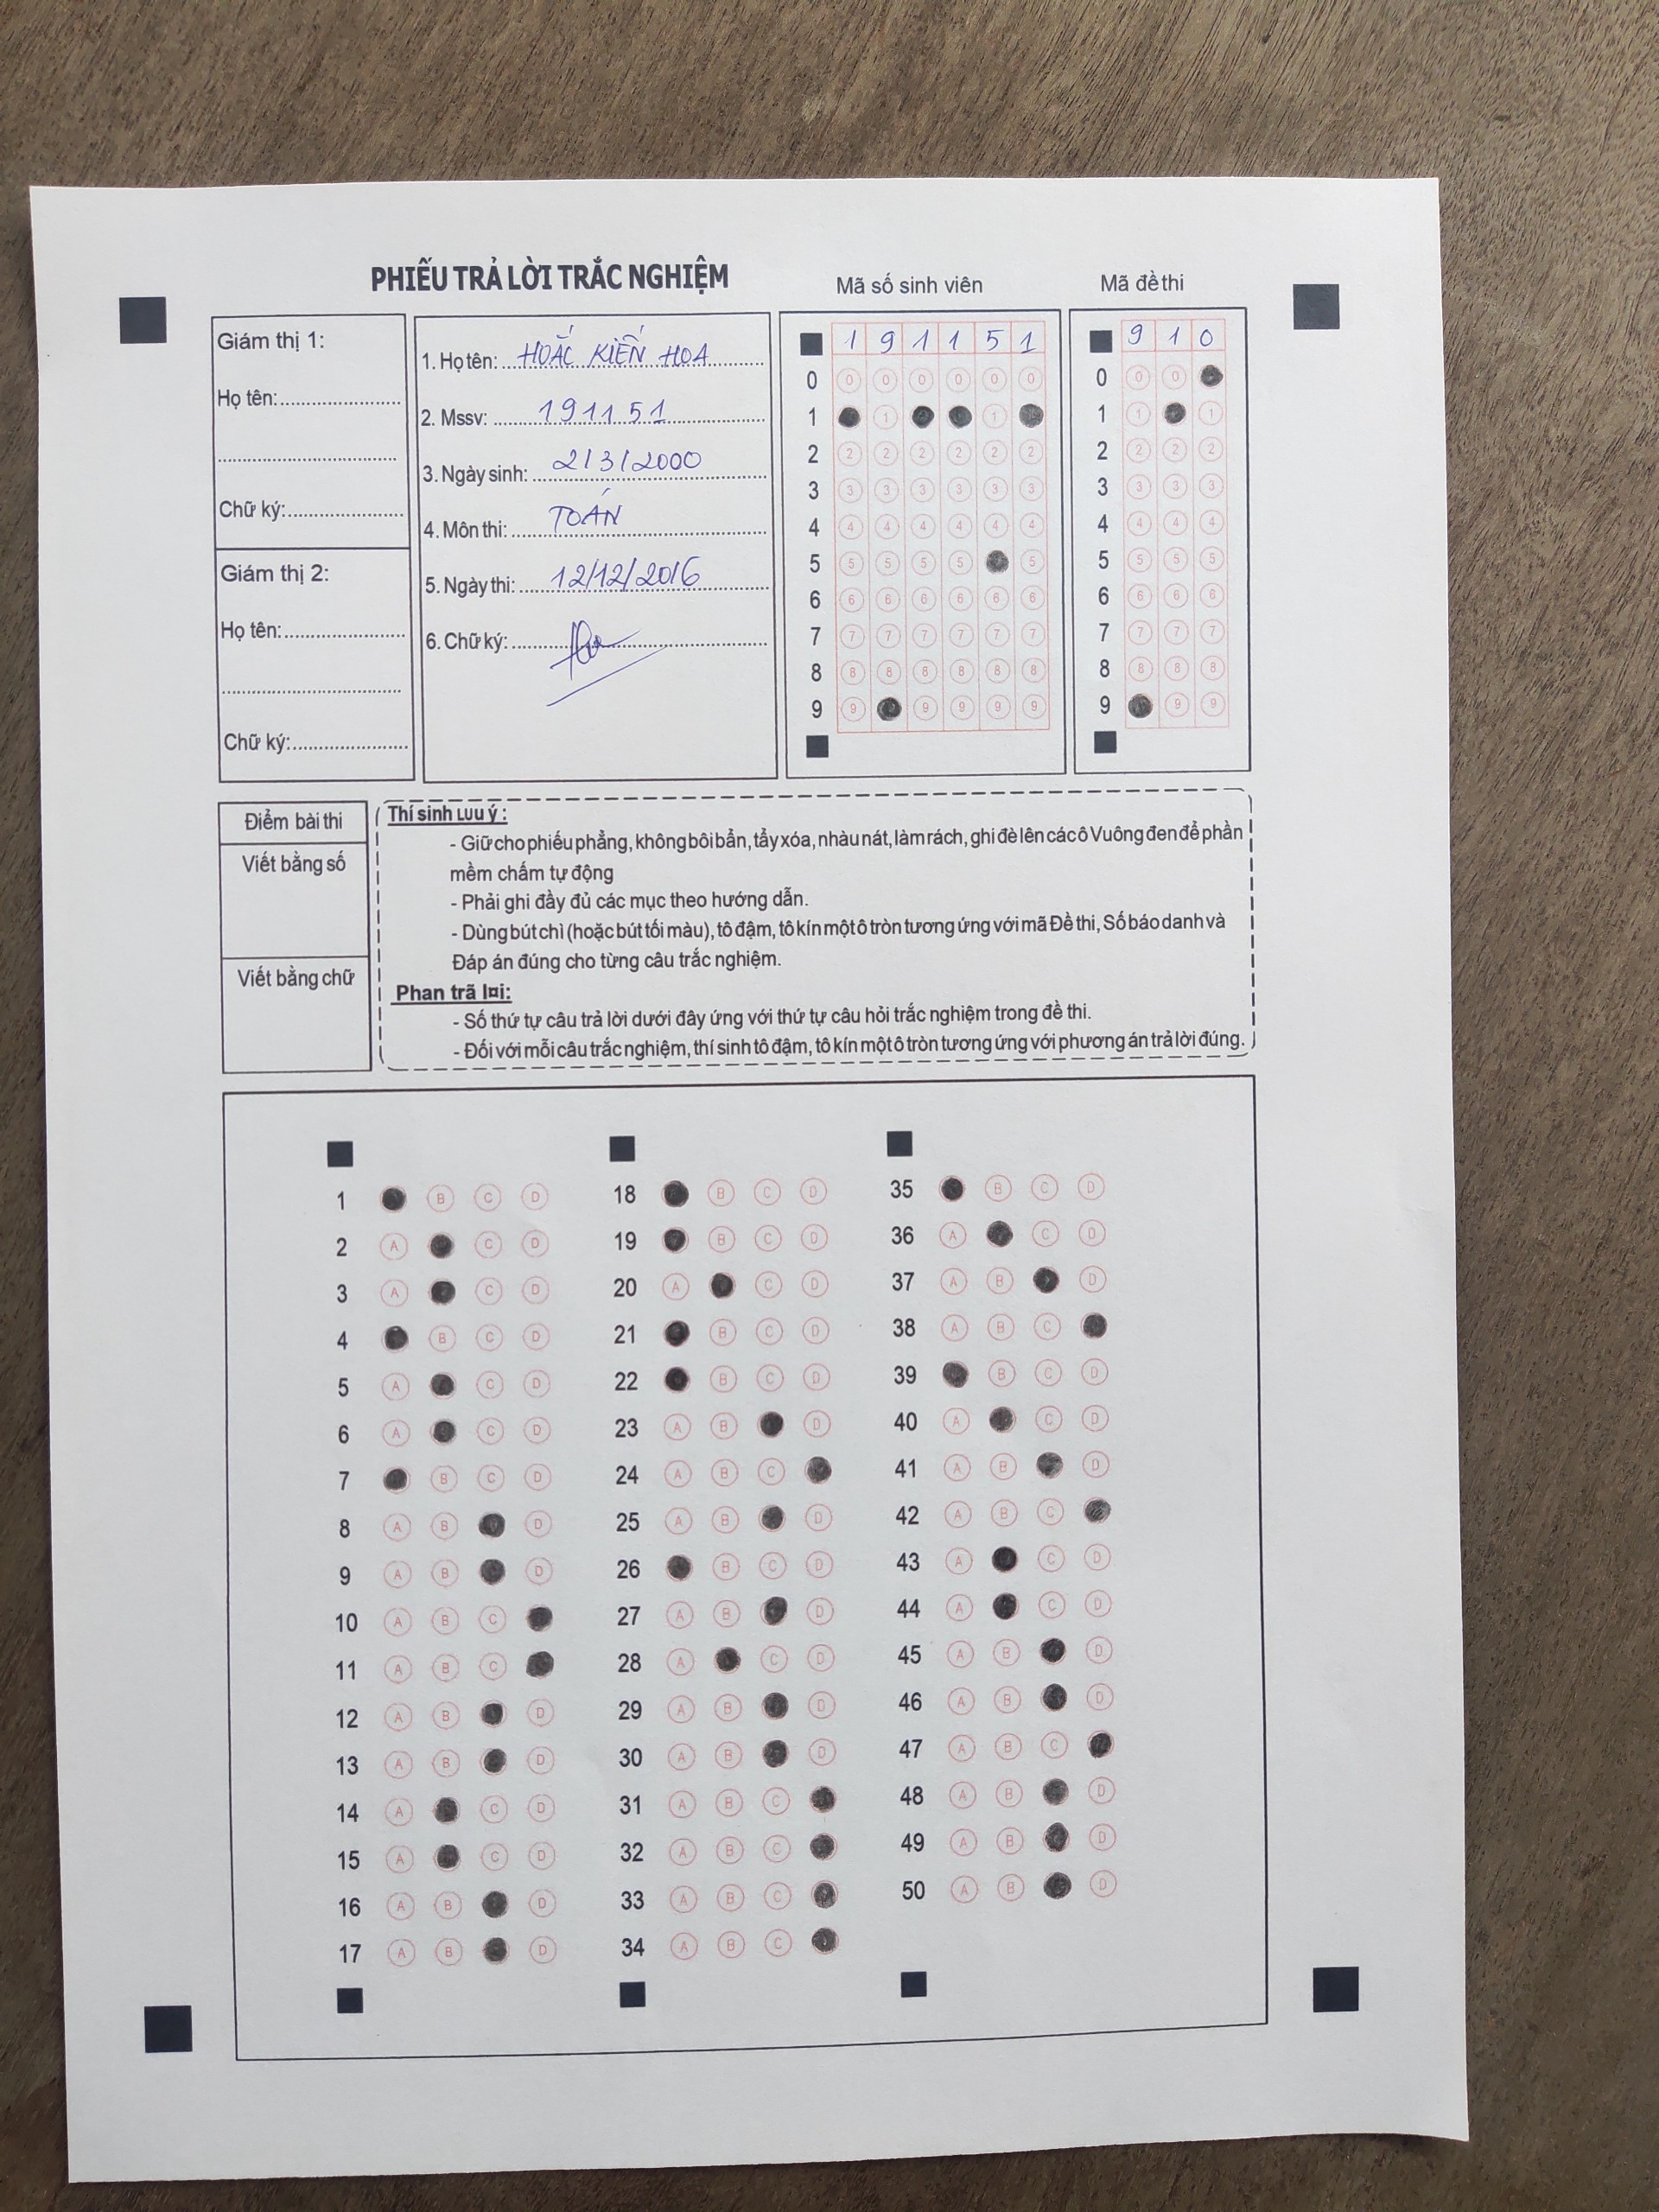 PHIẾU TRẢ LỜI TRẮC NGHIỆM
Mã số sinh viên
Mã đề thi
Giám thị 1:
Họ tên:
Chữ ký:
Giám thị 2:
Họ tên:
Chữ ký:
1. Họ tên: HOẮC KIẾN HOA
2. Mssv: 191151
3. Ngày sinh: 2/3/2000
4. Môn thi: TOÁN
5. Ngày thi: 12/12/2016
6. Chữ ký:
1 9 1 1 5 1
0 0 0 0 0 0 0
1 1 1
2 2 2 2 2 2 2
3 3 3 3 3 3 3
4 4 4 4 4 4 4
5 5 5 5 5 5
6 6 6 6 6 6 6
7 7 7 7 7 7 7
8 8 8 8 8 8 8
9 9 9 9 9 9
9 1 0
0 0 0
1 1 1
2 2 2 2
3 3 3 3
4 4 4 4
5 5 5 5
6 6 6 6
7 7 7 7
8 8 8 8
9 9 9
Điểm bài thi
Viết bằng số
Viết bằng chữ
Thí sinh Lưu ý :
- Giữ cho phiếu phẳng, không bôi bẩn, tẩy xóa, nhàu nát, làm rách, ghi đè lên các ô Vuông đen để phần
mềm chấm tự động
- Phải ghi đầy đủ các mục theo hướng dẫn.
- Dùng bút chì (hoặc bút tối màu), tô đậm, tô kín một ô tròn tương ứng với mã Đề thi, Số báo danh và
Đáp án đúng cho từng câu trắc nghiệm.
Phan trã l¤i:
- Số thứ tự câu trả lời dưới đây ứng với thứ tự câu hỏi trắc nghiệm trong đề thi.
- Đối với mỗi câu trắc nghiệm, thí sinh tô đậm, tô kín một ô tròn tương ứng với phương án trả lời đúng.
1 B C D
2 A C D
3 A C D
4 B C D
5 A C D
6 A C D
7 B C D
8 A B D
9 A B D
10 A B C
11 A B C
12 A B D
13 A B D
14 A C D
15 A C D
16 A B D
17 A B D
18 B C D
19 B C D
20 A C D
21 B C D
22 B C D
23 A B D
24 A B C
25 A B D
26 B C D
27 A B D
28 A C D
29 A B D
30 A B D
31 A B C
32 A B C
33 A B C
34 A B C
35 B C D
36 A C D
37 A B D
38 A B C
39 B C D
40 A C D
41 A B D
42 A B C
43 A C D
44 A C D
45 A B D
46 A B D
47 A B C
48 A B D
49 A B D
50 A B D